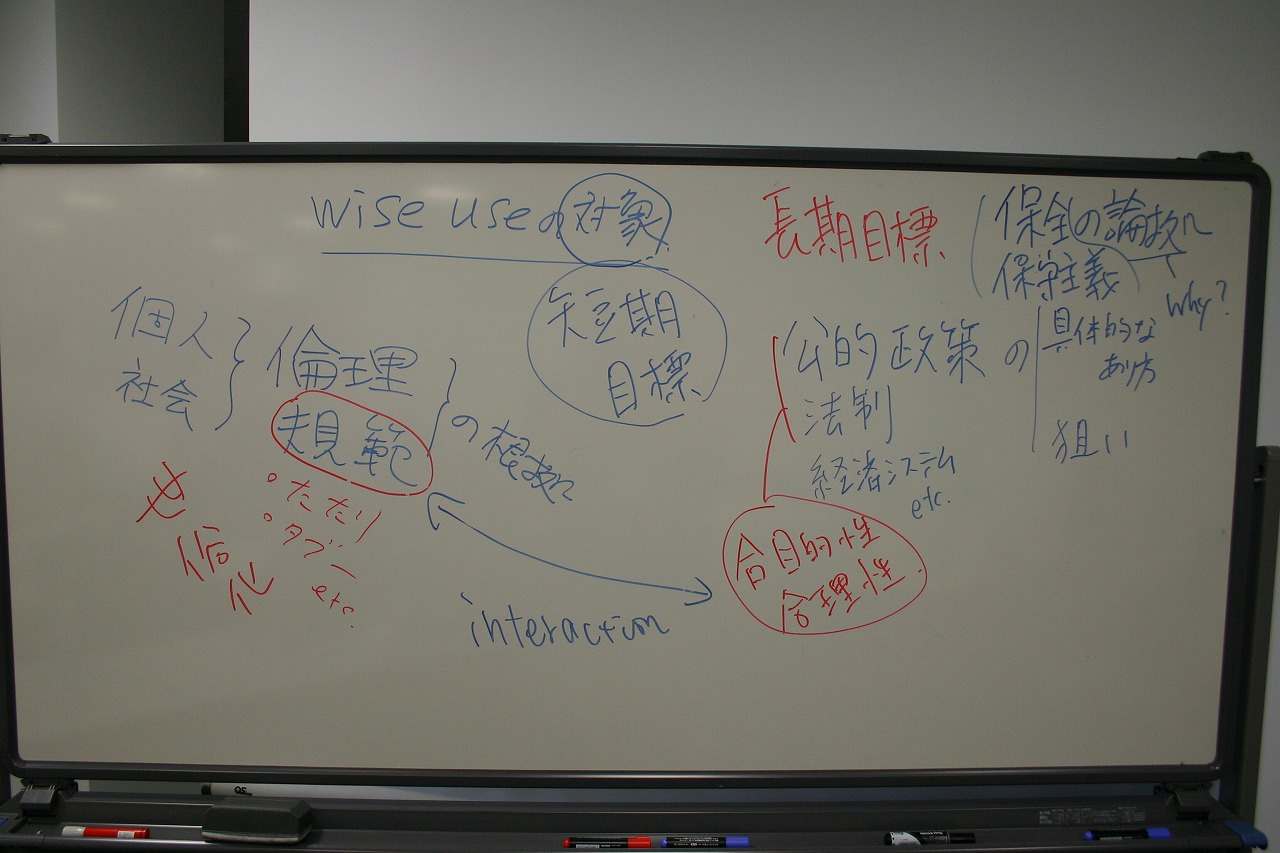 wise useの対象
短期
目標
長期目標
保全の論拠
保守主義
why?
個人
社会
倫理
規範
の根拠
たたり
タブー
etc.
公的政策の
法制
経済システム
etc.
具体的な
あり方
狙い
合目的性
合理性
interaction